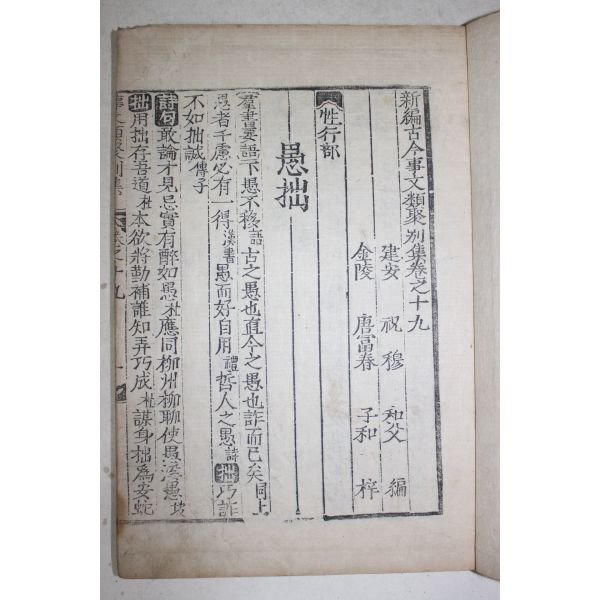 新編古今事文類聚別集卷之十九
建安 祝穆 和父 編
金陵 唐富春 子和 梓
性行部
愚拙
羣書要語下愚不移語古之愚也直今之愚也詐而已矣同上
愚者千慮必有一得漢書愚而好自用禮哲人之愚詩拙巧詐
不如拙誠傳子
詩句敢論才見忌實有醉如愚杜應同柳州柳聊使愚溪愚坡
拙用拙存吾道杜本欲將勤補誰知弄巧成杜謀身拙爲安蛇
事文類聚別集 卷之十九 一